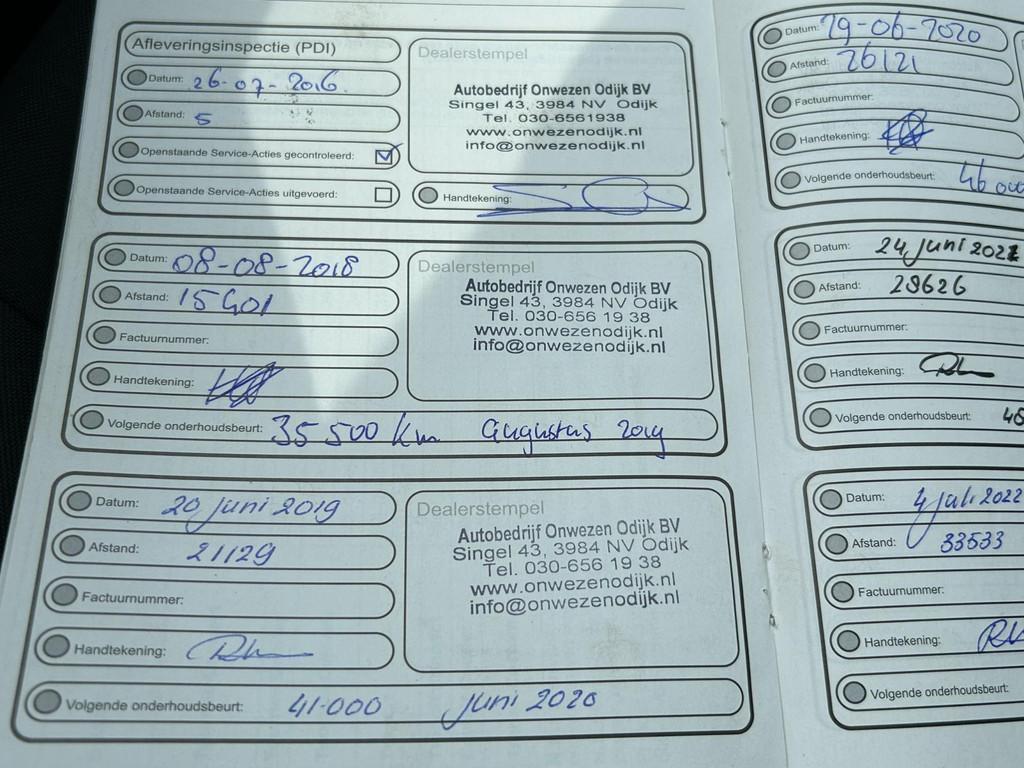 Afleveringsinspectie (PDI)
Datum: 26-07-2016.
Afstand: 5
Openstaande Service-Acties gecontroleerd:
Openstaande Service-Acties uitgevoerd:
Dealerstempel
Autobedrijf Onwezen Odijk BV
Singel 43, 3984 NV Odijk
Tel. 030-6561938
www.onwezenodijk.nl
info@onwezenodijk.nl
Handtekening:
Datum: 08-08-2018
Afstand: 15401
Factuurnummer:
Handtekening:
Volgende onderhoudsbeurt: 35 500 km augustus 2019
Dealerstempel
Autobedrijf Onwezen Odijk BV
Singel 43, 3984 NV Odijk
Tel. 030-656 19 38
www.onwezenodijk.nl
info@onwezenodijk.nl
Datum: 20 juni 2019
Afstand: 21129
Factuurnummer:
Handtekening:
Volgende onderhoudsbeurt: 41.000 juni 2020
Dealerstempel
Autobedrijf Onwezen Odijk BV
Singel 43, 3984 NV Odijk
Tel. 030-656 19 38
www.onwezenodijk.nl
info@onwezenodijk.nl
Datum: 29-06-2020
Afstand: 26121
Factuurnummer:
Handtekening:
Volgende onderhoudsbeurt: 46 000
Datum: 24 juni 2021
Afstand: 29626
Factuurnummer:
Handtekening:
Volgende onderhoudsbeurt:
Datum: 4 juli 2022
Afstand: 33533
Factuurnummer:
Handtekening:
Volgende onderhoudsbeurt: